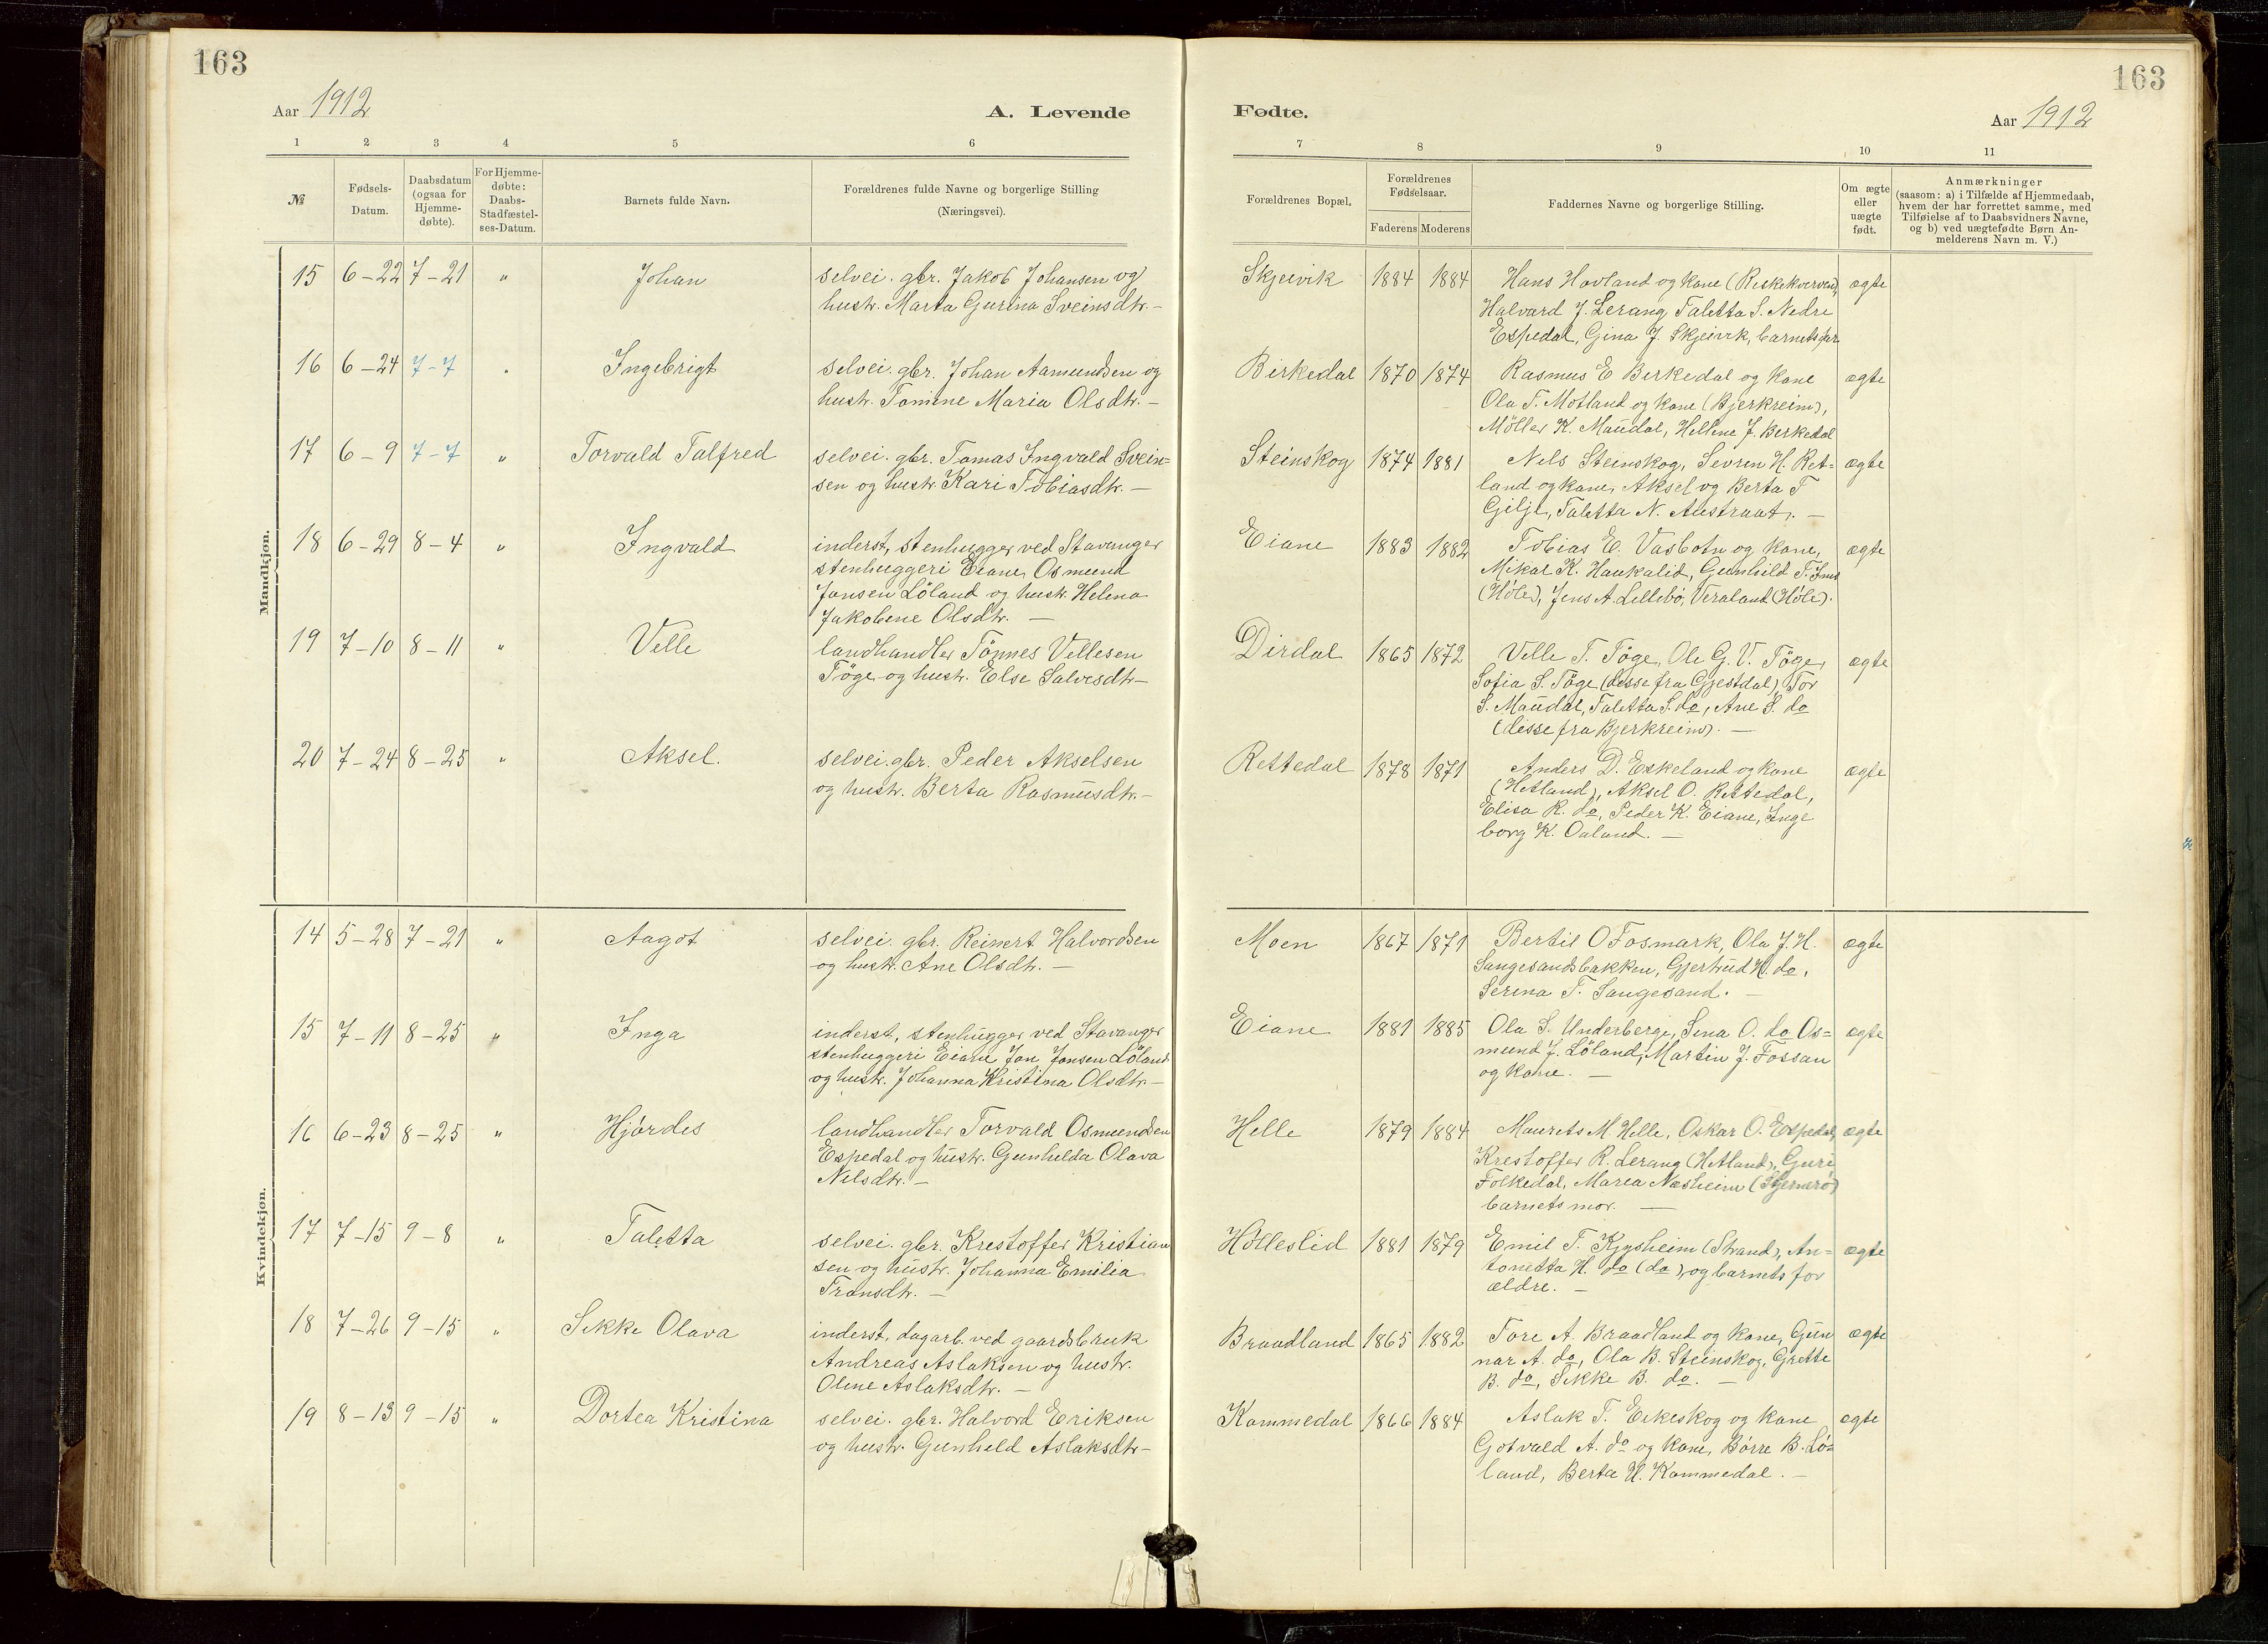 163
Aar 1912
A. Levende
1 2 3 4 5 6
№
Fødsels-Datum.
Daabsdatum (ogsaa for Hjemme-døbte).
For Hjemme-døbte: Daabs-Stadfæstel-ses-Datum.
Barnets fulde Navn.
Forældrenes fulde Navne og borgerlige Stilling
(Næringsvei).
Mandkjøn.
15 6-22 7-21 " Johan selvei. gbr. Jakob Johansen og
hustr. Marta Gurina Sveinsdtr. -
16 6-24 7-7 " Ingebrigt selvei. gbr. Johan Aamundsen og
hustr. Tomine Maria Olsdtr. -
17 6-9 7-7 " Torvald Talfred selvei. gbr. Tomas Ingvald Svein=
sen og hustr. Kari Tobiasdtr. -
18 6-29 8-4 " Ingvald inderst, stenhugger ved Stavanger
stenhuggeri Eiane, Osmund
Jansen Löland og hustr. Helena
Jakobine Olsdtr. -
19 7-10 8-11 " Velle landhandler Tönnes Vellesen
Töge og hustr. Else Salvesdtr -
20 7-24 8-25 " Aksel. selvei. gbr. Peder Akselsen
og hustr. Berta Rasmusdtr. -
Kvindekjøn.
14 5-28 7-21 " Aagot selvei. gbr. Reinert Halvordsen
og hustr. Ane Olsdtr. -
15 7-11 8-25 " Inga inderst, stenhugger ved Stavanger
stenhuggeri Eiane Jon Jonsen Löland
og hustr. Johanna Kristina Olsdtr -
16 6-23 8-25 " Hjördis landhandler Torvald Osmundsen
Espedal og hustr. Gunhilda Olava
Nilsdtr. -
17 7-15 9-8 " Taletta selvei. gbr. Kristoffer Kristian
sen og hustr. Johanna Emilia
Transdtr. -
18 7-26 9-15 " Sikke Olava inderst, dagarb. ved gaardsbruk
Andreas Aslaksen og hustr.
Oline Aslaksdtr. -
19 8-13 9-15 " Dortea Kristina selvei. gbr. Halvord Eriksen
og hustr. Gunhild Aslaksdtr -
163
Fødte.
Aar 1912
7 8 9 10 11
Forældrenes Bopæl.
Forældrenes Fødselsaar.
Faderens Moderens
Faddernes Navne og borgerlige Stilling.
Om ægte eller uægte født.
Anmærkninger
(saasom: a) i Tilfælde af Hjemmedaab,
hvem der har forrettet samme, med
Tilføielse af to Daabsvidners Navne,
og b) ved uægtefødte Børn An-
melderens Navn m. V.)
Skjeivik 1884 1884 Hans Hovland og kone (Riskekverven), ægte
Halvard J. Lerang Taletta S. Nedre
Espedal, Gina J. Skjeivik, barnets far
Birkedal 1870 1874 Rasmus E Birkedal og kone ægte
Ola T. Motland og kone (Bjerkreim),
Möller K. Maudal, Helline J. Birkedal
Steinskog 1874 1881 Nils Steinskog, Sevrin H. Ret= ægte
land og kone, Aksel og Berta T
Gilje, Taletta N. Austraat. -
Eiane 1883 1882 Tobias E. Vasbotn og kone, ægte
Mikal K. Haukalid, Gunhild T. Ims
(Höle), Jens A. Lillebö, Veraland (Höle).
Dirdal 1865 1872 Velle T. Töge, Ole G. V. Töge, ægte
Sofia S. Töge (disse fra Gjestdal), Tor
S. Maudal, Taletta S. do, Ane S. do
(disse fra Bjerkreim). -
Rettedal 1878 1871 Anders D. Eskeland og kone ægte
(Hetland), Aksel O. Rettedal,
Elisa R. do, Peder K. Eiane, Inge
borg K. Oaland. -
Moen 1867 1871 Bertil O Fosmark, Ola J. H. ægte
Sangesandsbakken, Gjertrud H. do,
Serina T. Sangesand. -
Eiane 1881 1885 Ola S. Underberge, Sina O. do Os= ægte
mund J. Löland, Martin J. Fossan
og kone. -
Helle 1879 1884 Maurits M Helle, Oskar O. Espedal, ægte
Kristoffer R. Lerang (Hetland), Guri
Folkedal, Maria Næsheim (Sjernerö)
barnets mor. -
Hölleslid 1881 1879 Emil T. Kjosheim (Strand), An= ægte
tonetta H. do (do), og barnets for
ældre. -
Braadland 1865 1882 Tore A. Braadland og kone, Gun ægte
nar A. do, Ola B. Steinskog, Gretle
B. do, Sikke B. do. -
Kommedal 1866 1884 Aslak T. Eikeskog og kone ægte
Gotvald A. do og kone, Börre B. Lö=
land, Berta H. Kommedal. -